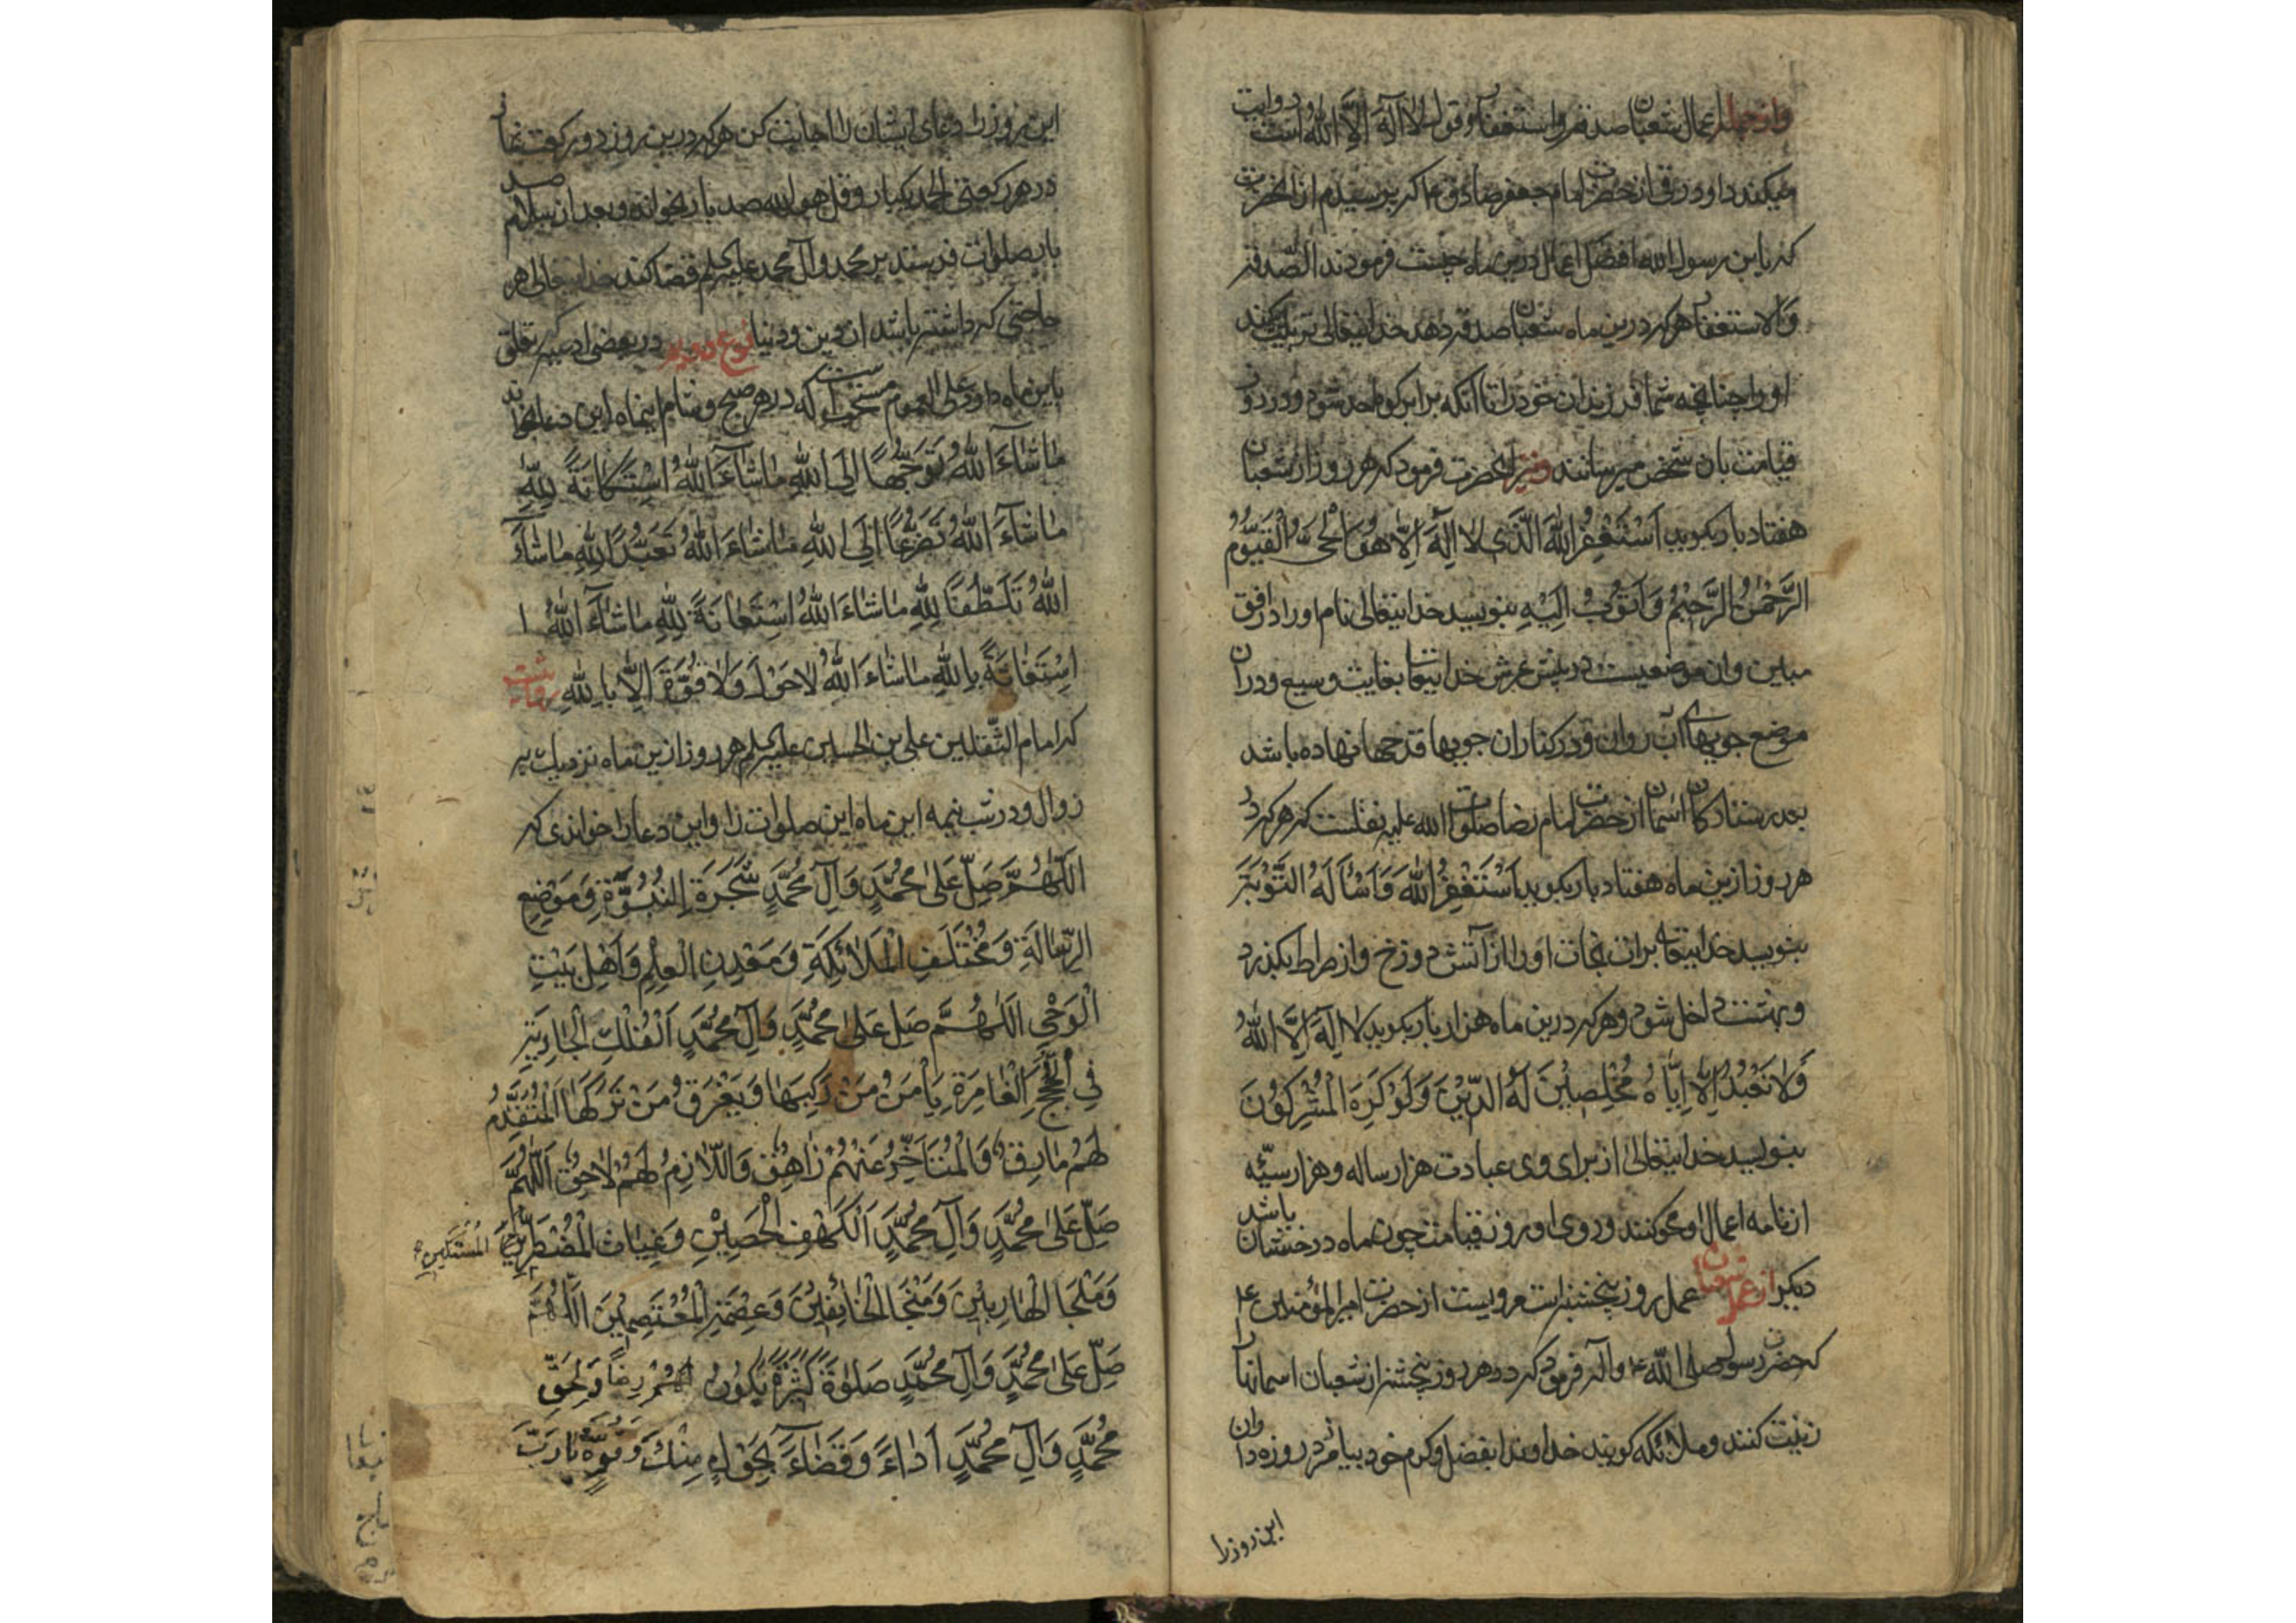 واز جمله اعمال شعبان صدقه واستغفار وقول لا اله الا الله است وروایت
میکند داود رقی از حضرت امام جعفر صادق ع که پرسیدم از انحضرت
که یابن رسول الله افضل اعمال درین ماه چیست فرمودند الصدقه
والاستغفار هرکه درین ماه شعبان صدقه دهد خدایتعالی تربیت کند
او را چنانچه شما فرزندان خود را تا انکه برابر کوه احد شود ودر روز
قیامت بان شخص میرسانند ونیز انحضرت فرمود که هر روز از شعبان
هفتاد بار بکوید اَسْتَغْفِرُ اللهَ الَّذی لا اِلٰهَ اِلّا هُوَ الْحَیُّ الْقَیُّومُ
الرَّحْمٰنُ الرَّحیمُ وَاَتُوبُ اِلَیْهِ بنویسد خدایتعالی نام او را در افق
مبین وان موضعیست در پیش عرش خدایتعا بغایت وسیع ودران
موضع جویهای آب روان ودر کنار ان جویها قدحها نهاده باشد
بعدد ستارکان اسمان از حضرت امام رضا صلوات الله علیه نقلست که هرکه در
هر روز ازین ماه هفتاد بار بکوید اَسْتَغْفِرُ اللهَ وَاَسْأَلُهُ التَّوْبَةَ
بنویسد خدایتعا برات نجات او را از آتش دوزخ واز صراط بکذرد
وبهشت داخل شود وهرکه درین ماه هزار بار بکوید لا اِلٰهَ اِلَّا اللهُ
وَلا نَعْبُدُ اِلّا اِیّاهُ مُخْلِصینَ لَهُ الدّینَ وَلَوْ کَرِهَ الْمُشْرِکُونَ
بنویسد خدایتعالی از برای وی عبادت هزار ساله وهزار سیّئه
از نامه اعمال او محو کنند وروی او روز قیامت چون ماه درخشان باشد
دیکر از عمل شعبان عمل روز پنجشنبه است مرویست از حضرت امیرالمؤمنین ع
که حضرت رسول صلی الله ع وآله فرمود که در هر روز پنجشنبه از شعبان اسمانها را
زینت کنند وملائکه کویند خداوندا بفضل وکرم خود بیامرز روزه داران
این روز را
این روز را ودعای ایشان را اجابت کن هرکه درین روز دو رکعت نماز
در هر رکعتی الحمد یکبار وقل هو الله صد بار بخواند وبعد از سلام صد
بار صلوات فرستد بر محمد وآل محمد علیهم السلم قضا کند خدایتعالی هر
حاجتی که داشته باشد از دین ودنیا نوع دویم در بعضی ادعیه تعلق
باین ماه دارد علی العموم مستحب است که در هر صبح وشام اینماه این دعا بخواند
مٰا شٰاءَ اللهُ تَوَجُّهاً اِلَی اللهِ مٰا شٰاءَ اللهُ اسْتِکٰانَةً لِلّٰهِ
مٰا شٰاءَ اللهُ تَضَرُّعاً اِلَی اللهِ مٰا شٰاءَ اللهُ تَعَبُّداً لِلّٰهِ مٰا شٰاءَ
اللهُ تَلَطُّفاً لِلّٰهِ مٰا شٰاءَ اللهُ اسْتِعٰانَةً لِلّٰهِ مٰا شٰاءَ اللهُ ا
اِسْتِغٰاثَةً بِاللهِ مٰا شٰاءَ اللهُ لا حَوْلَ وَلا قُوَّةَ اِلّا بِاللهِ روایتست
که امام الثقلین علی بن الحسین علیهم السلم هر روز ازین ماه نزدیک به
زوال ودر شب نیمه این ماه این صلوات را واین دعا را خواندی که
اَللّٰهُمَّ صَلِّ عَلیٰ مُحَمَّدٍ وَآلِ مُحَمَّدٍ شَجَرَةِ النُّبُوَّةِ وَمَوْضِعِ
الرِّسٰالَةِ وَمُخْتَلَفِ الْمَلٰائِکَةِ وَمَعْدِنِ الْعِلْمِ وَاَهْلِ بَیْتِ
الْوَحْیِ اَللّٰهُمَّ صَلِّ عَلیٰ مُحَمَّدٍ وَآلِ مُحَمَّدٍ اَلْفُلْکِ الْجٰارِیَةِ
فِی اللُّجَجِ الْغٰامِرَةِ یَأْمَنُ مَنْ رَکِبَهٰا وَیَغْرَقُ مَنْ تَرَکَهَا الْمُتَقَدِّمُ
لَهُمْ مٰارِقٌ وَالْمُتَأَخِّرُ عَنْهُمْ زٰاهِقٌ وَاللّٰازِمُ لَهُمْ لٰاحِقٌ اَللّٰهُمَّ
صَلِّ عَلیٰ مُحَمَّدٍ وَآلِ مُحَمَّدٍ اَلْکَهْفِ الْحَصینِ وَغِیٰاثِ الْمُضْطَرِّینَ الْمُسْتَکینِ
وَمَلْجَأِ الْهٰارِبینَ وَمَنْجَا الْخٰائِفینَ وَعِصْمَةِ الْمُعْتَصِمینَ اَللّٰهُمَّ
صَلِّ عَلیٰ مُحَمَّدٍ وَآلِ مُحَمَّدٍ صَلوٰةً کَثیرَةً تَکُونُ لَهُمْ رِضاً وَلِحَقِّ
مُحَمَّدٍ وَآلِ مُحَمَّدٍ اَدٰاءً وَقَضٰاءً بِحَوْلٍ مِنْکَ وَقُوَّةٍ یٰا رَبَّ